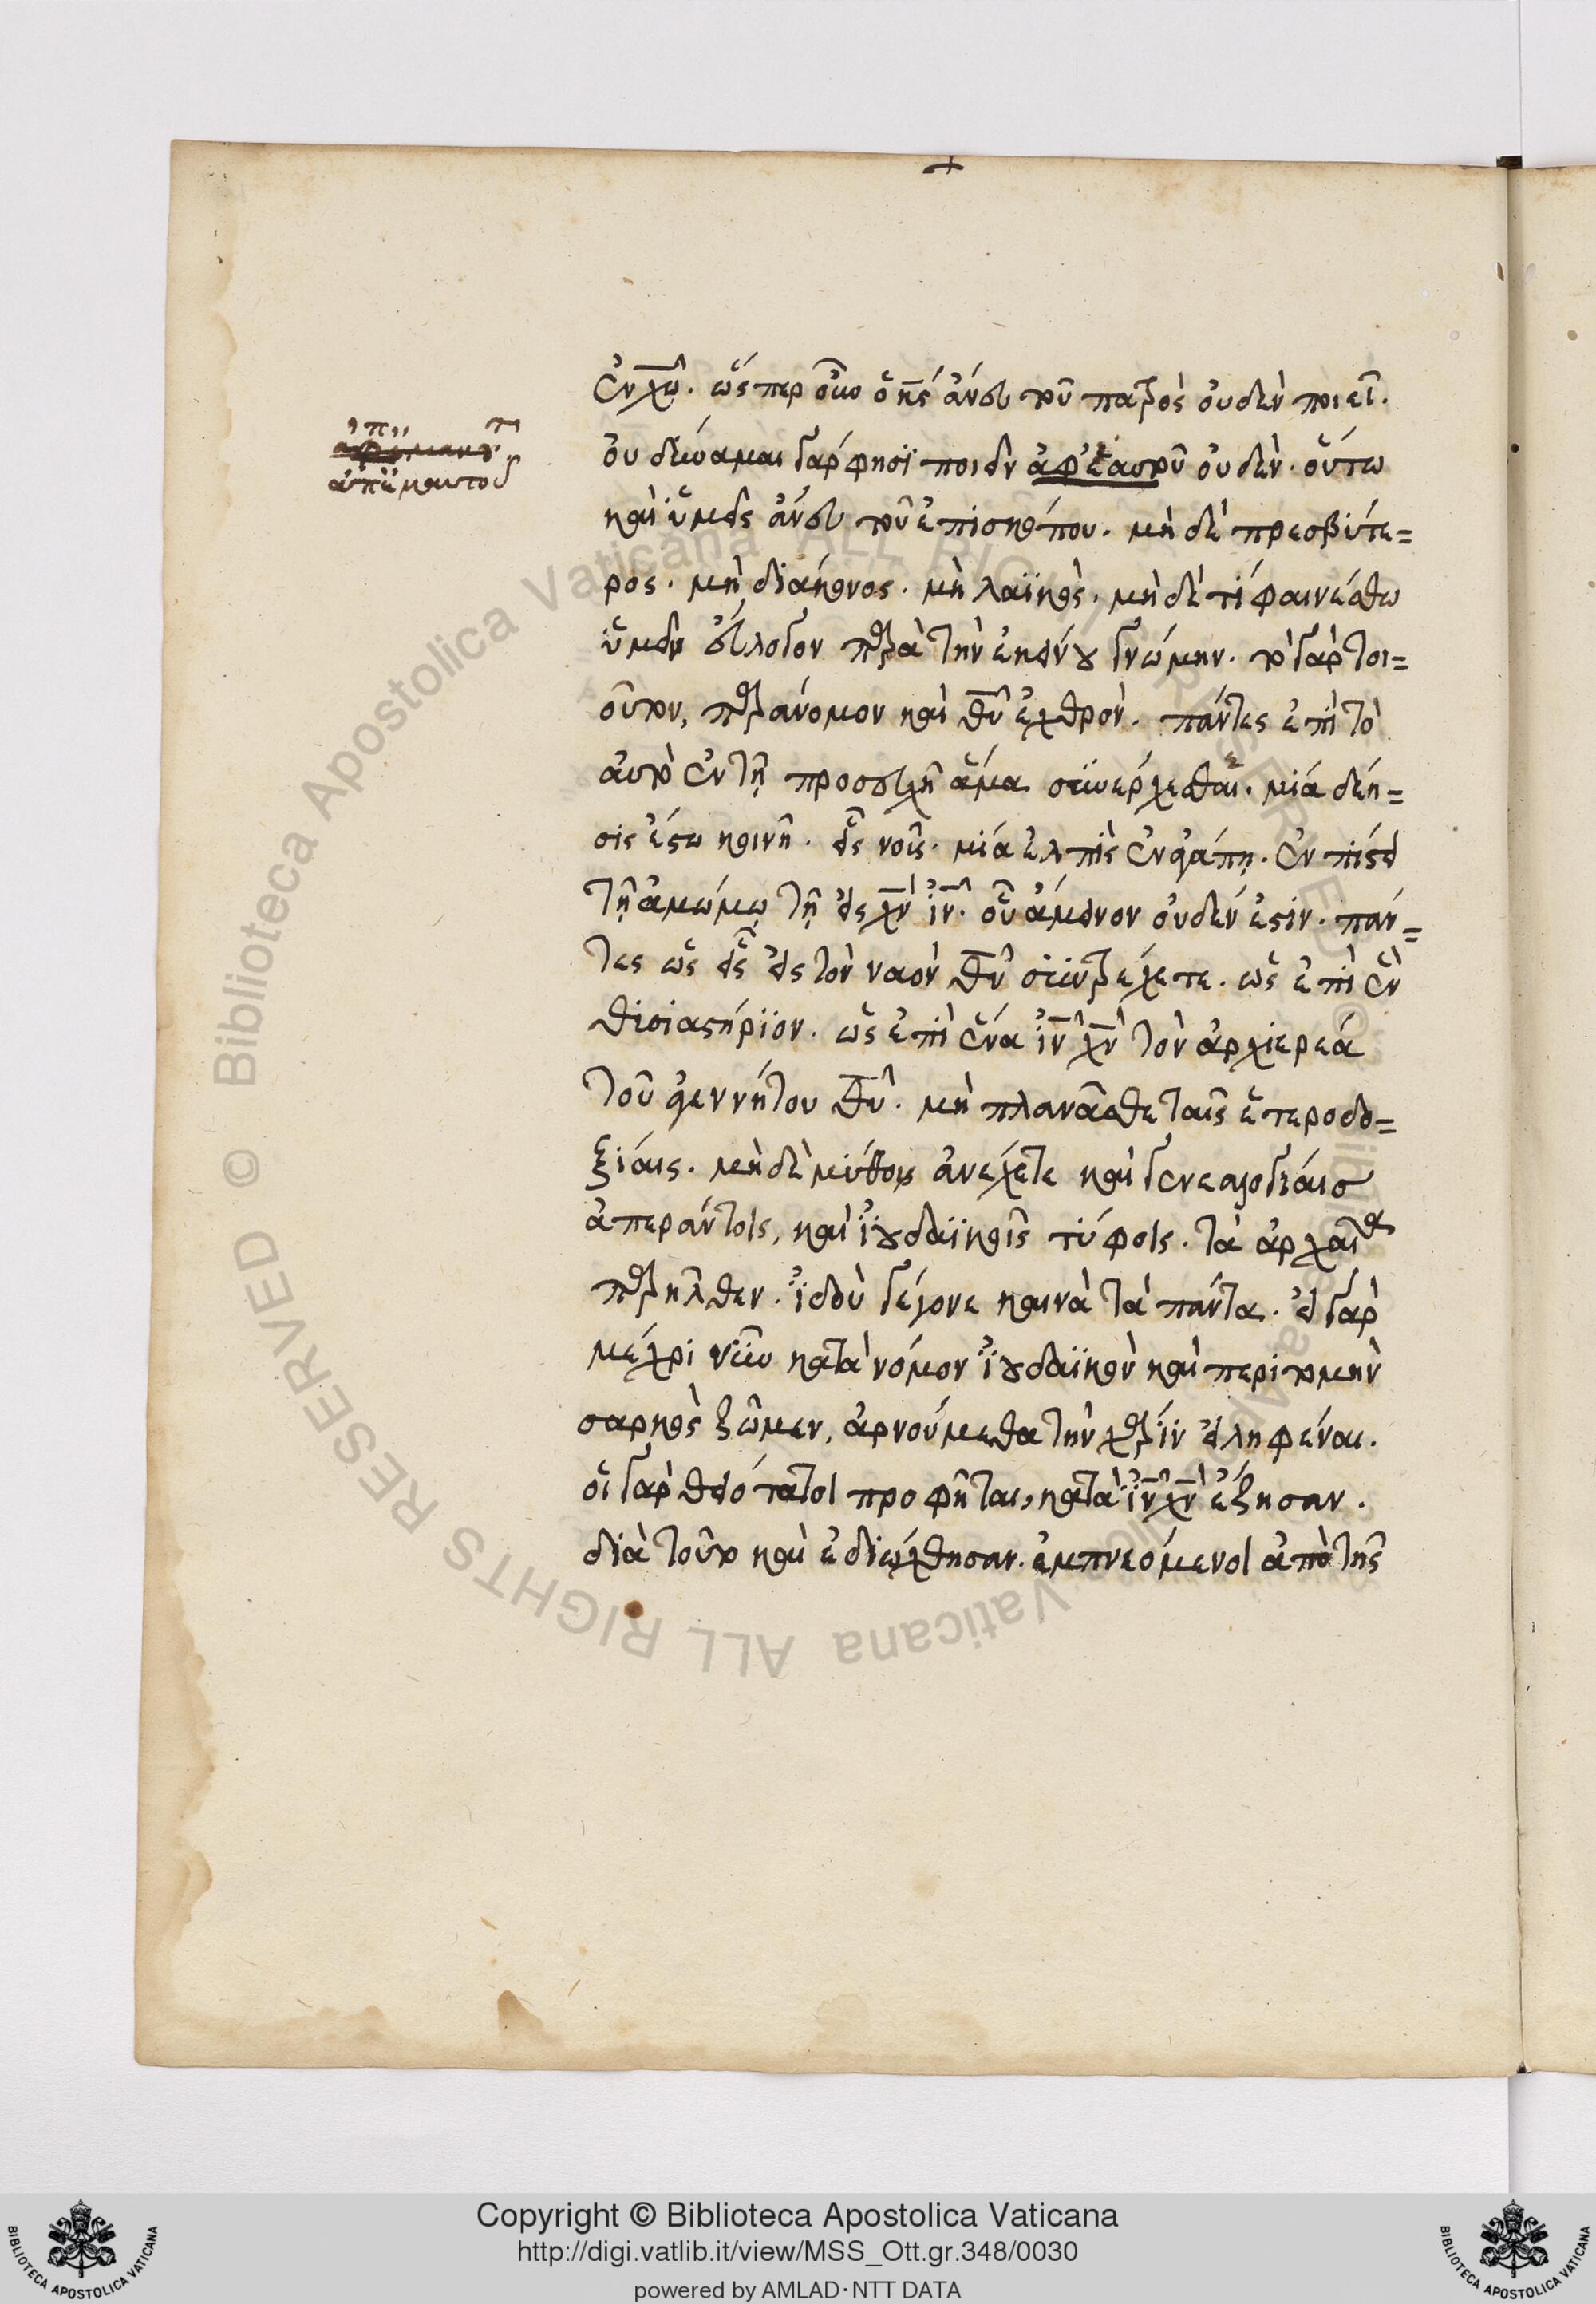 ἐν χω̅. ὥσπερ οὖν ὁ κ̅ς ἄνευ τοῦ πατρὸς οὐδὲν ποιεῖ.
οὐ δύναμαι γάρ φησϊ ποιεῖν ἀφ' ἑαυτοῦ οὐδέν. οὕτω
ἀπ' ἐμαυτοῦ
καὶ ὑμεῖς ἄνευ τοῦ ἐπισκόπου. μὴ δὲ πρεσβύτε=
ρος. μὴ διάκονος. μὴ λαϊκὸς. μὴ δέ τί φαινέσθω
ὑμῖν εὔλογον παρὰ τὴν ἐκείνου γνώμην. τὸ γὰρ τοι=
οῦτον, παράνομον καὶ θ̅υ ἐχθρὸν. πάντες ἐπὶ τὸ
αὐτὸ ἐν τῇ προσευχῇ ἅμα συνέρχεσθαι. μιά δέη=
σις ἔστω κοινὴ. εἷς νοῦς. μιά ἐλπὶς ἐν ἀγάπῃ. ἐν πίστει
τῇ ἀμώμῳ τῇ εἰς χ̅ν ἰ̅ν. οὗ ἄμεινον οὐδέν ἐστιν. πάν=
τες ὡς εἷς εἰς τὸν ναὸν θ̅υ συντρέχετε. ὡς ἐπὶ ἓν
θυσιαστήριον. ὡς ἐπὶ ἕνα ἰ̅ν χ̅ν τὸν ἀρχιερεά
τοῦ ἀγεννήτου θ̅υ. μὴ πλανᾶσθε ταῖς ἑτεροδο=
ξίαις. μὴ δὲ μύθοις ἀνέχετε καὶ γενεαλογίαις
ἀπεράντοις, καὶ ἰουδαϊκοῖς τύφοις. τὰ ἀρχαῖα
παρῆλθεν. ἰδοὺ γέγονε καινὰ τὰ πάντα. εἰ γὰρ
μέχρι νῦν κατὰ νόμον ἰουδαϊκὸν καὶ περιτομὴν
σαρκὸς ζῶμεν, ἀρνούμεθα τὴν χάριν εἰληφέναι.
οἱ γὰρ θειότατοι προφῆται, κατὰ ἰ̅ν χ̅ν ἔζησαν.
διὰ τοῦτο καὶ ἐδιώχθησαν. ἐμπνεόμενοι ἀπὸ τῆς
Copyright © Biblioteca Apostolica Vaticana
http://digi.vatlib.it/view/MSS_Ott.gr.348/0030
powered by AMLAD·NTT DATA
BIBLIOTECA APOSTOLICA VATICANA
BIBLIOTECA APOSTOLICA VATICANA
© Biblioteca Apostolica Vaticana ALL RIGHTS RESERVED
© Biblioteca Apostolica Vaticana ALL RIGHTS RESERVED